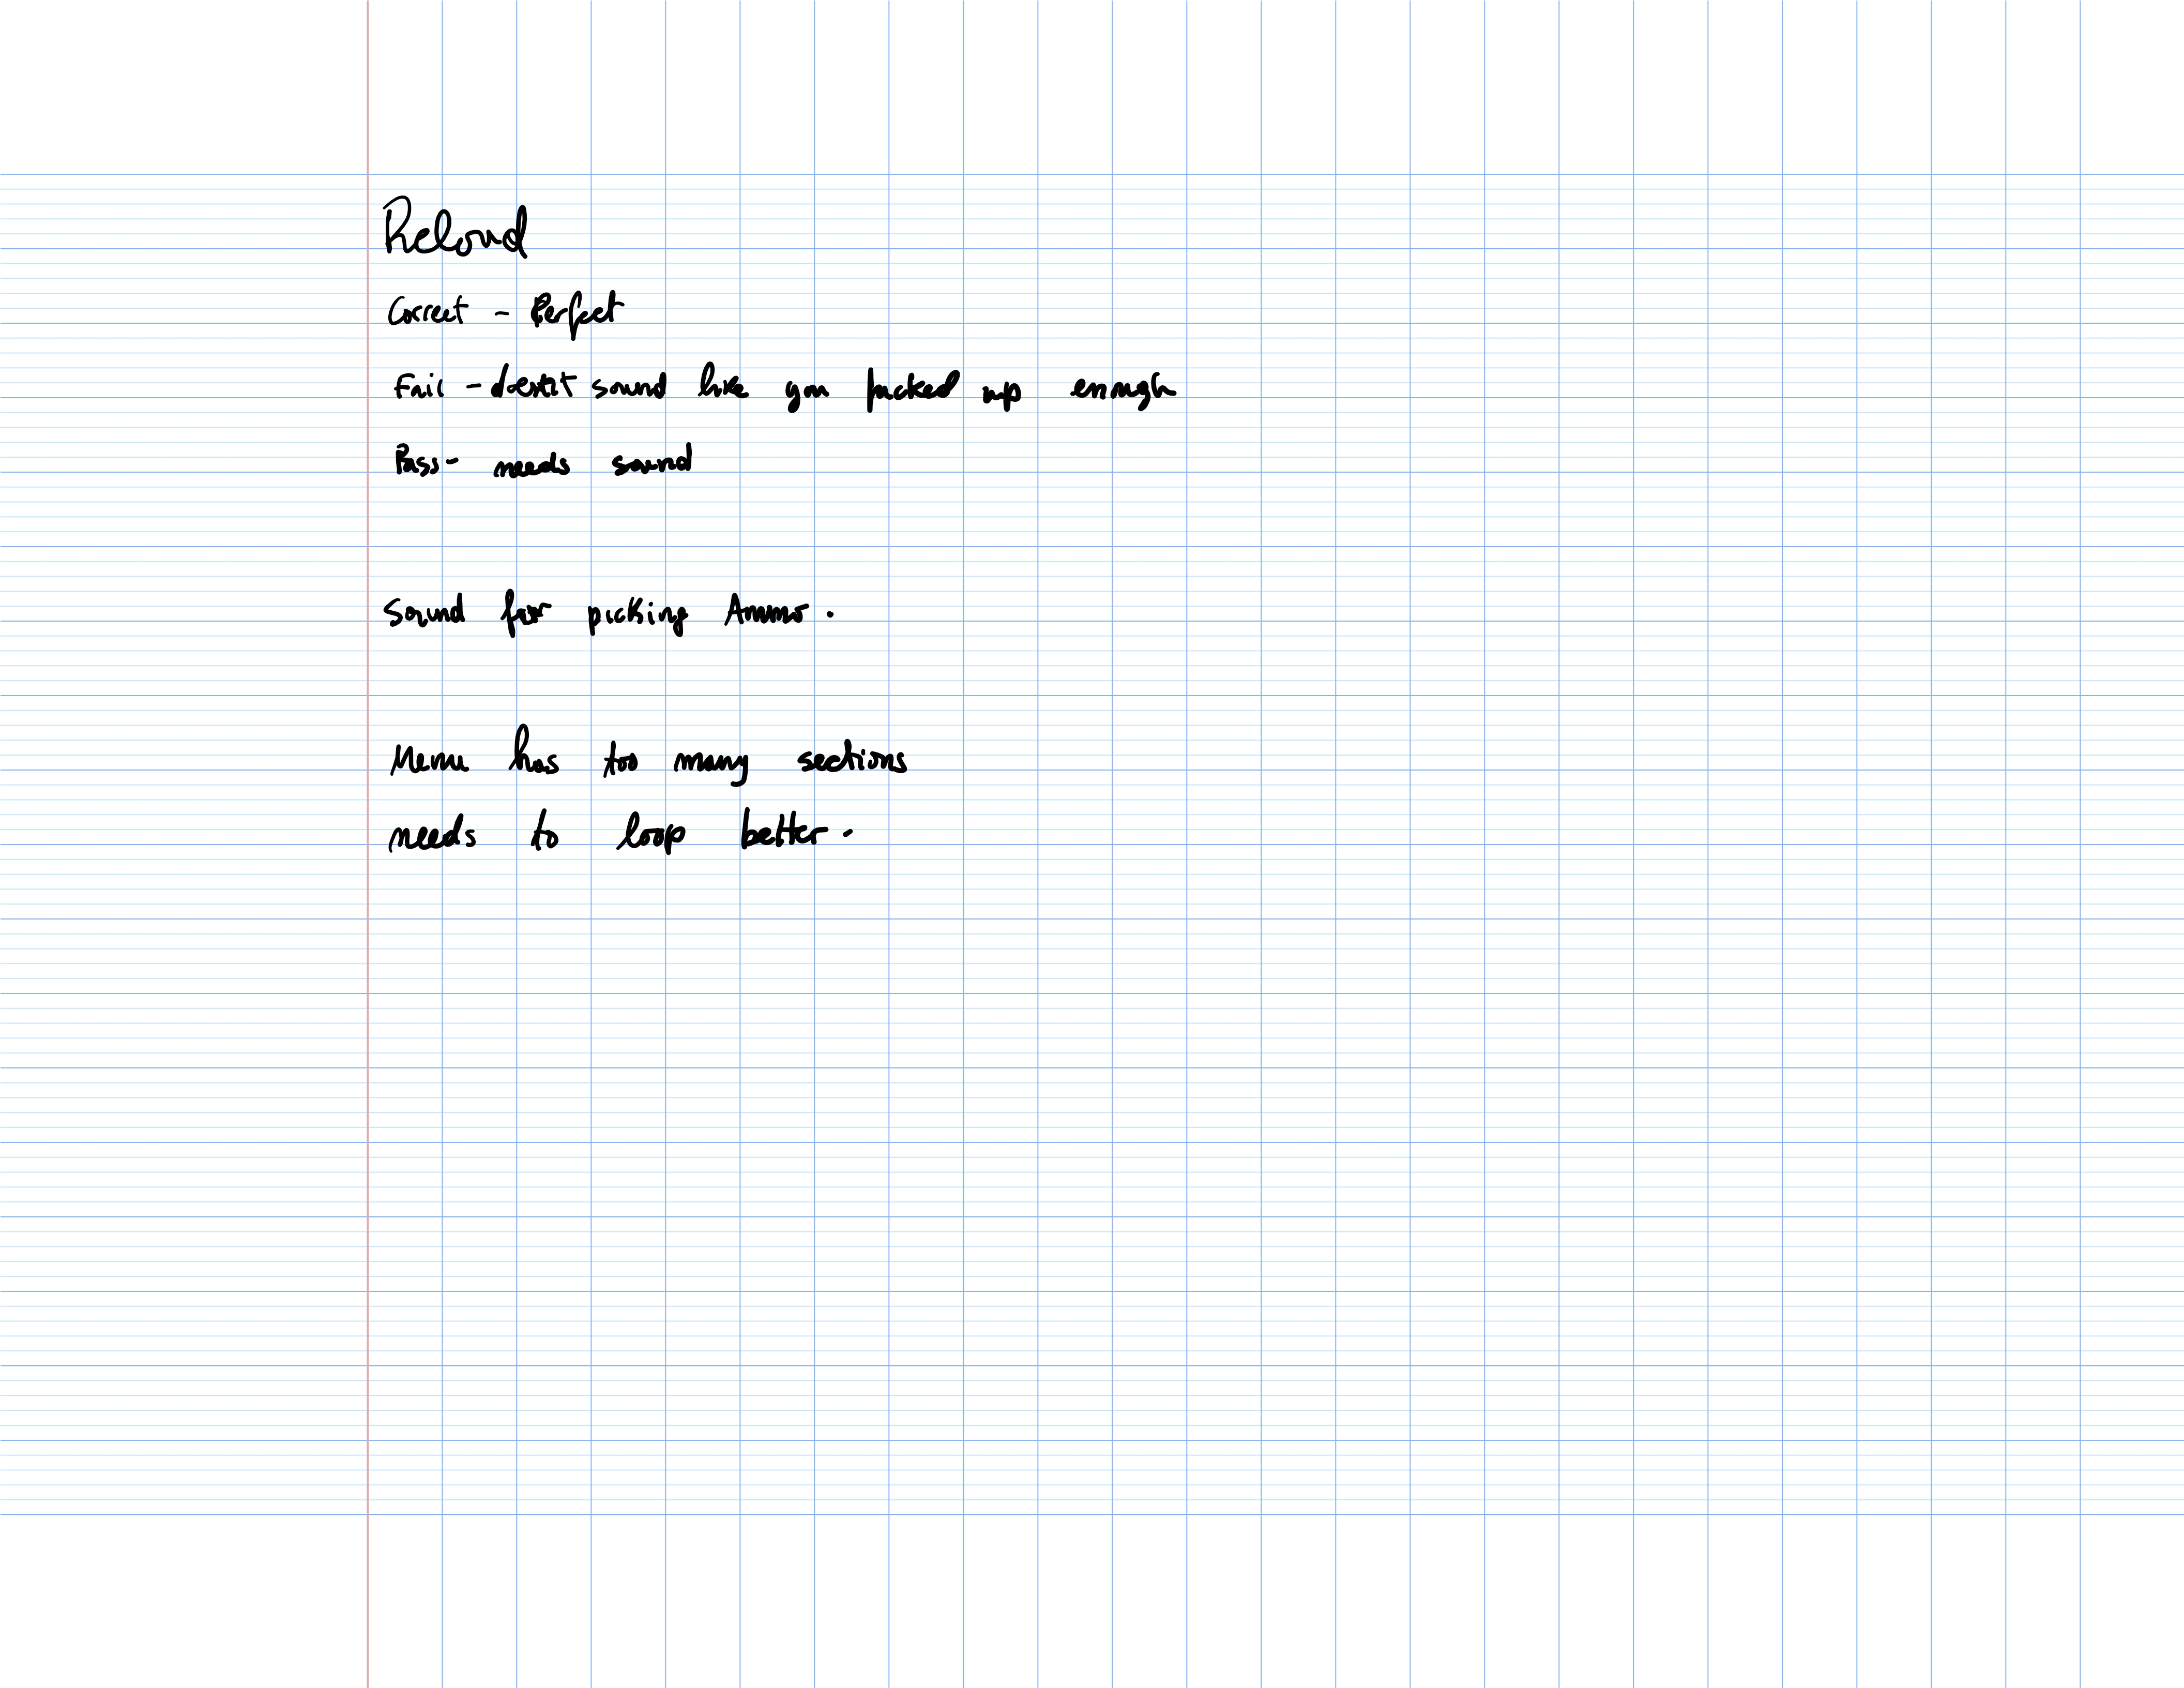 Reload
Correct - Perfect
Fail - doesn't sound like you fucked up enough
Pass - needs sound
Sound for picking Ammo.
Menu has too many sections
needs to loop better.